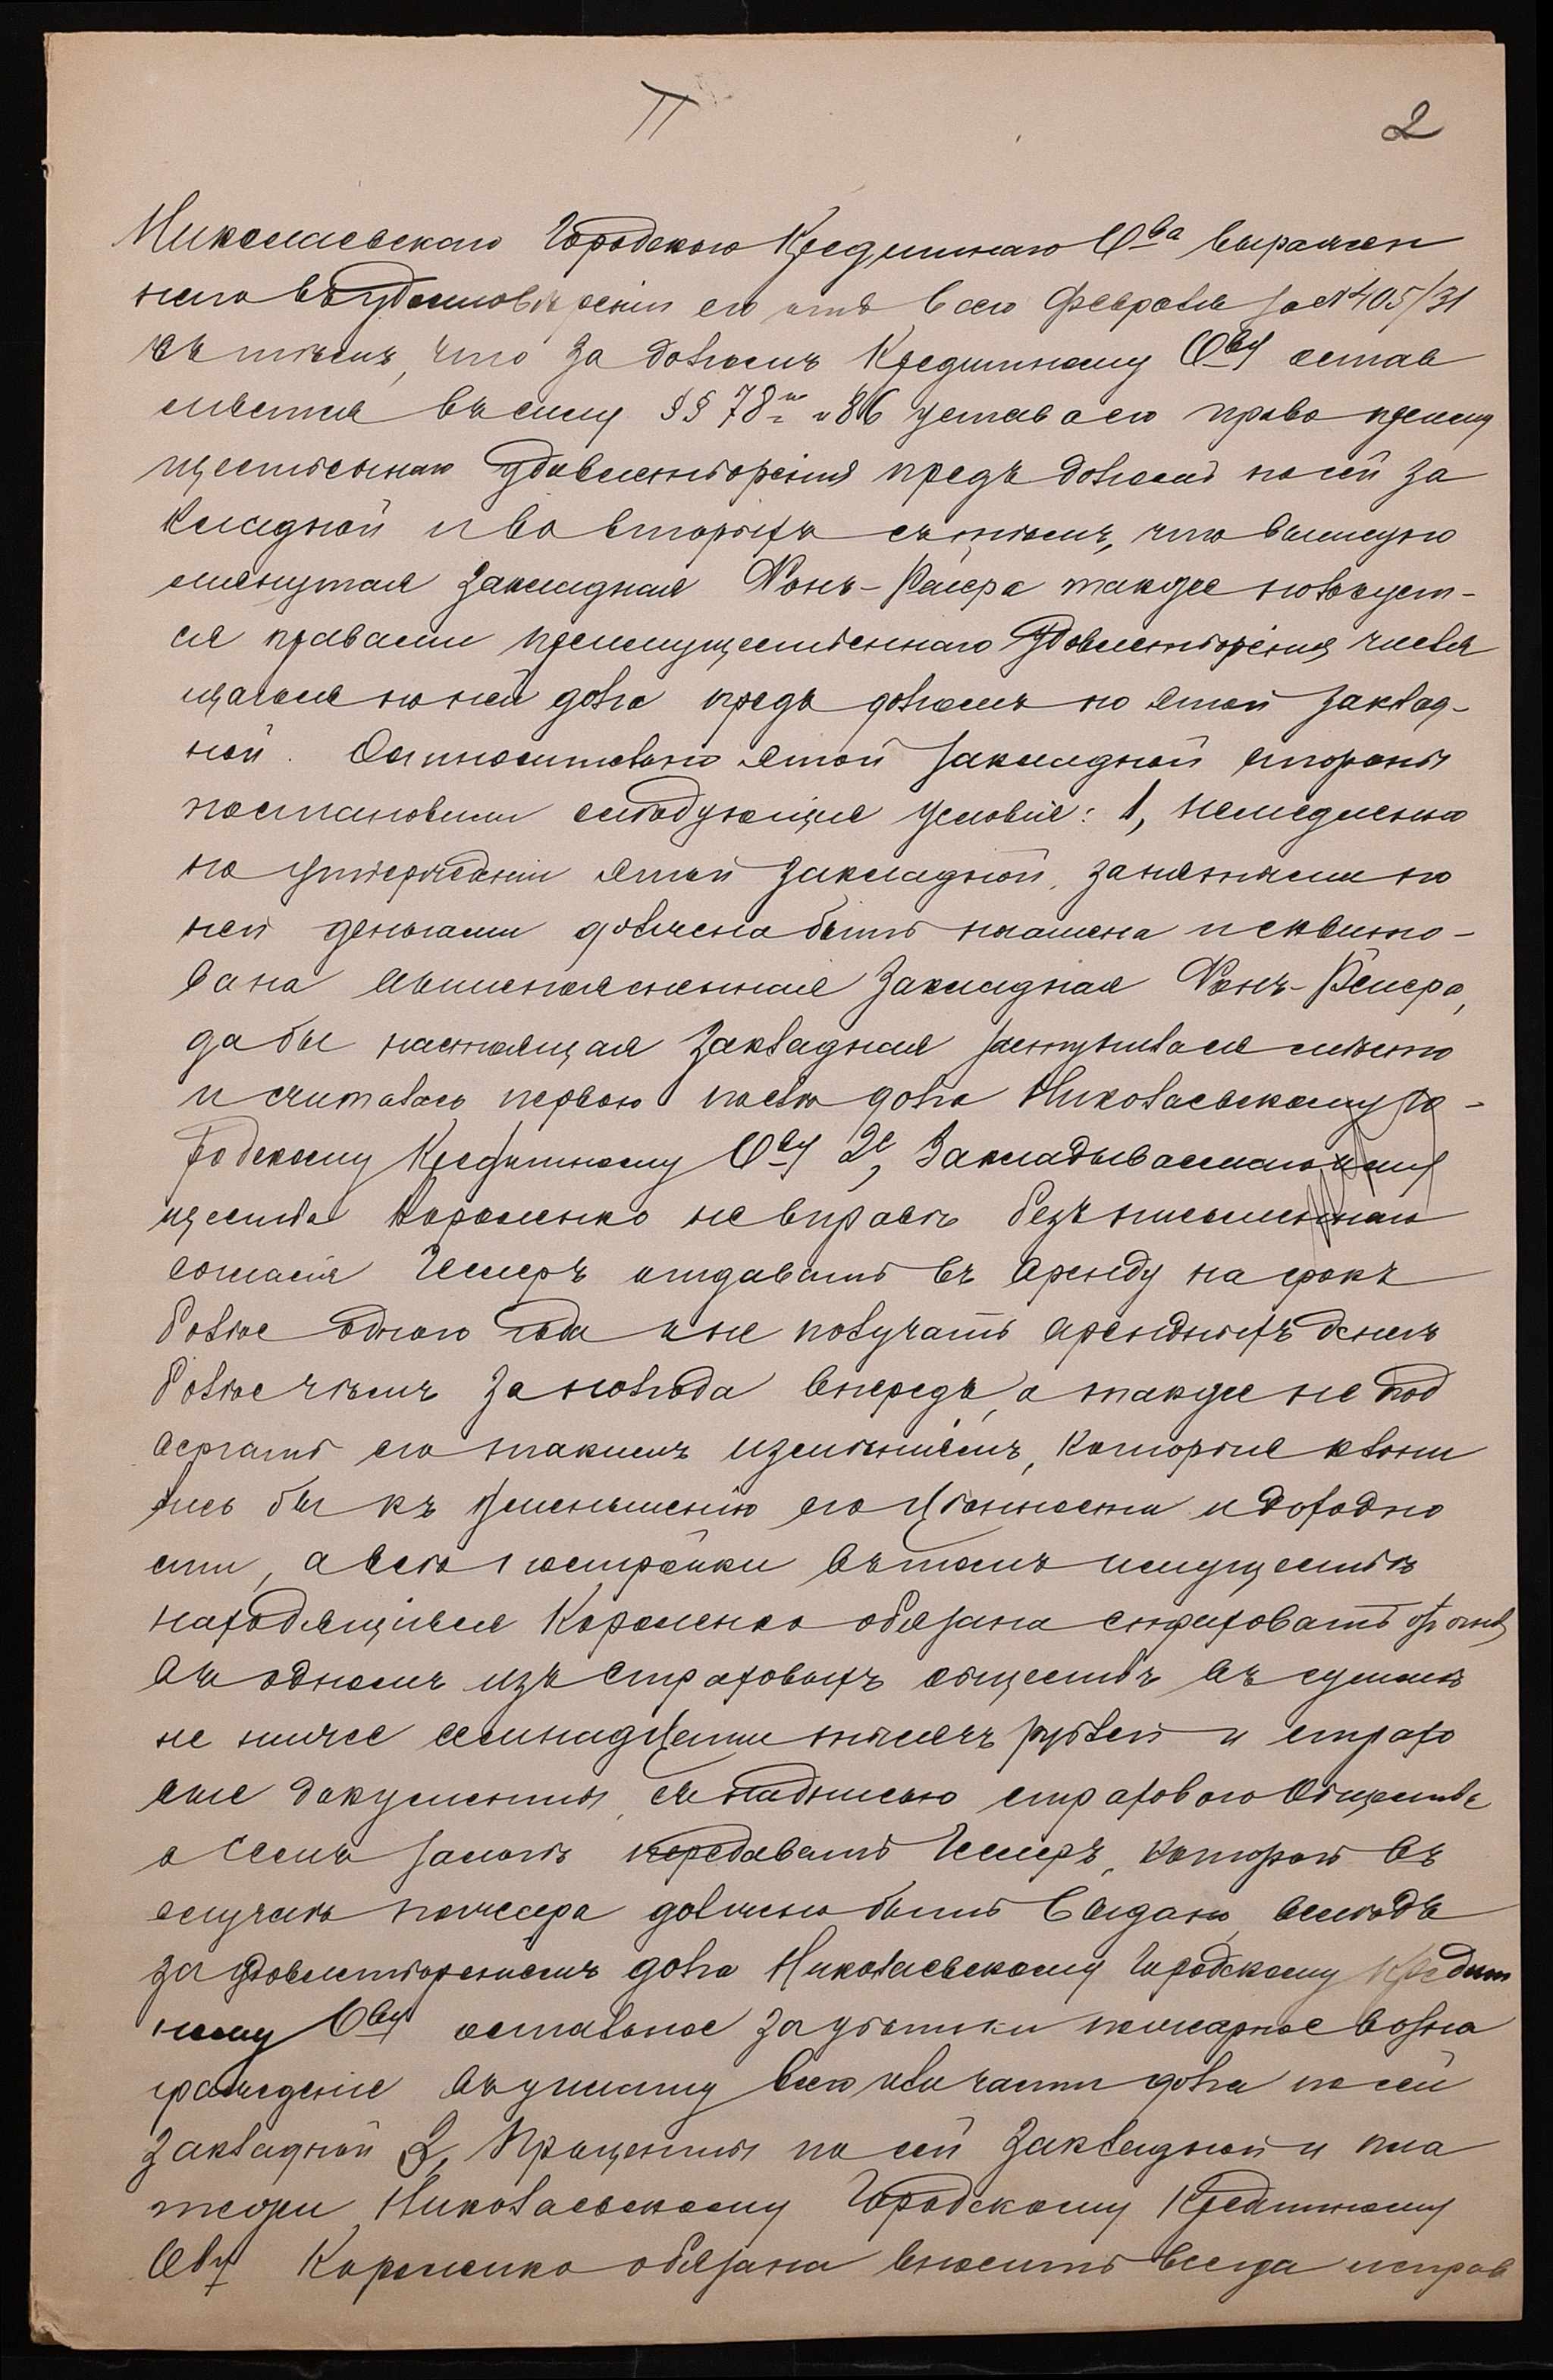 П
2
Николаевскаго Городского Кредитнаго О<sup>ва</sup> выражен
наго въ удостовѣреніи его отъ 6 сего Февраля за № 405/31
съ тѣмъ, что за долгомъ Кредитному О<sup>ву</sup> остав
ляется въ силу §§ 78 и 86 устава его право преиму
щественнаго удовлетворенія предъ долгомъ по сей за
кладной и во вторыхъ съ тѣмъ, что вышеупо
мянутая закладная Фонъ-Рение также пользует-
ся правами преимущественнаго удовлетворенія числя
щагося по ней долга предъ долгомъ по этой заклад-
ной. Относительно этой закладной стороны
постановили слѣдующія условія: 1, немедленно
по утвержденіи этой закладной, занятыми по
ней деньгами должна быть погашена и сквито-
вана вышепоясненная закладная Фонъ-
дабы настоящая закладная заступила ея мѣсто
и считалась первою послѣ долга Николаевскому Го-
родскому Кредитному О<sup>ву</sup> 2<sup>е</sup>, Закладываемаго иму
щества Короленко не вправѣ безъ письменнаго
согласія Чемеръ отдавать въ аренду на срокъ
болѣе одного года и не получать арендныхъ денегъ
болѣе чѣмъ за полгода впередъ, а также не под
вергать его такимъ измѣненіямъ, которые клони
лись бы къ уменьшенію его цѣнности и доходно
сти, а всѣ постройки въ томъ имуществѣ
находящіяся Короленко обязана страховать отъ огня
въ одномъ изъ страховыхъ обществъ въ суммѣ
не ниже семнадцати тысячъ рублей и страхо
вые документы, съ надписью страхового Общества
о семъ залогѣ передавать Чемеръ, которой въ
случаѣ пожара должно быть выдано, вслѣдъ
за удовлетвореніемъ долга Николаевскому Городскому Кредит
ному О<sup>ву</sup> остальное за убытки пожарное возна
гражденіе въ уплату всего или части долга по сей
закладной 3, Проценты по сей закладной и пла
тежи Николаевскому Городскому Кредитному
О<sup>ву</sup> Короленко обязана вносить всегда исправ